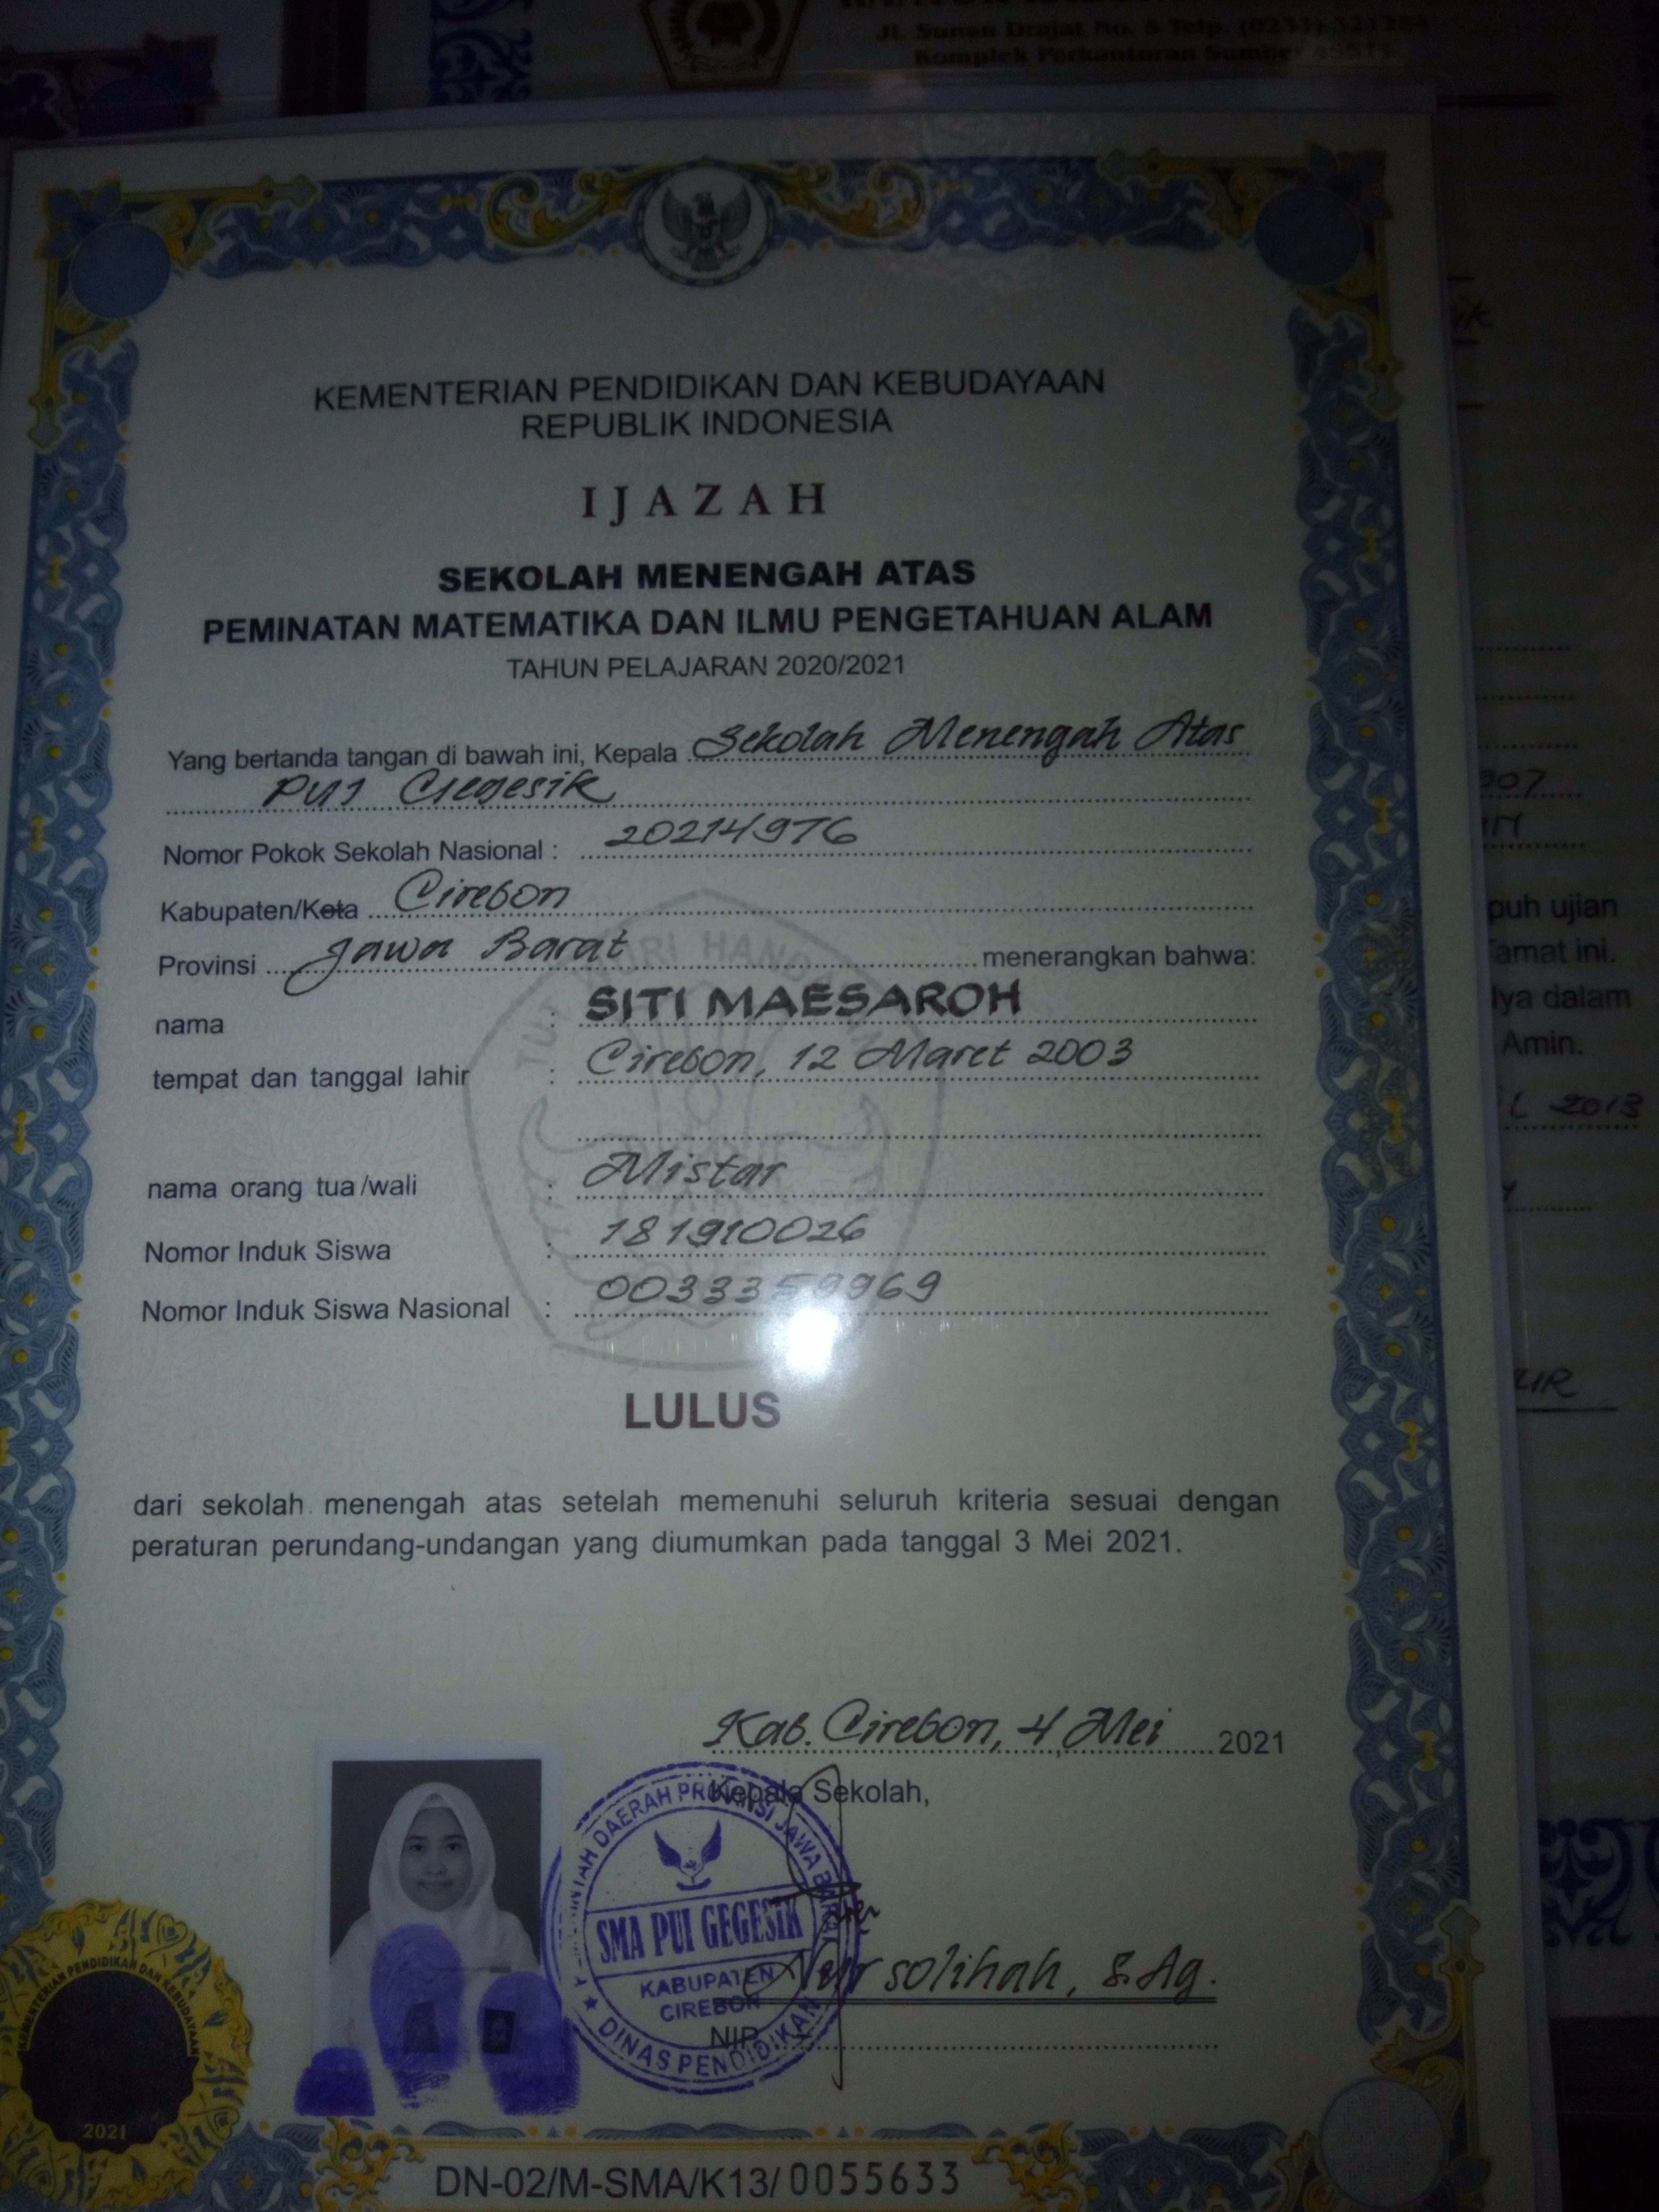 Jl. Sunan Drajat No. 5 Telp. (0231) 321384
Komplek Perkantoran Sumber 45611
KEMENTERIAN PENDIDIKAN DAN KEBUDAYAAN
REPUBLIK INDONESIA
IJAZAH
SEKOLAH MENENGAH ATAS
PEMINATAN MATEMATIKA DAN ILMU PENGETAHUAN ALAM
TAHUN PELAJARAN 2020/2021
Yang bertanda tangan di bawah ini, Kepala Sekolah Menengah Atas
PUI Gegesik
Nomor Pokok Sekolah Nasional : 20214976
Kabupaten/Kota Cirebon
Provinsi Jawa Barat menerangkan bahwa:
nama : SITI MAESAROH
tempat dan tanggal lahir : Cirebon, 12 Maret 2003
nama orang tua/wali : Mistar
Nomor Induk Siswa : 181910026
Nomor Induk Siswa Nasional : 0033359969
LULUS
dari sekolah menengah atas setelah memenuhi seluruh kriteria sesuai dengan
peraturan perundang-undangan yang diumumkan pada tanggal 3 Mei 2021.
Kab. Cirebon, 4 Mei 2021
Kepala Sekolah,
PROVINSI JAWA BARAT
SMA PUI GEGESIK
KABUPATEN
CIREBON
DINAS PENDIDIKAN
Nursolihah, S.Ag.
NIP
KEMENTERIAN PENDIDIKAN DAN KEBUDAYAAN
2021
DN-02/M-SMA/K13/0055633
puh ujian
amat ini.
dalam
Amin.
2013